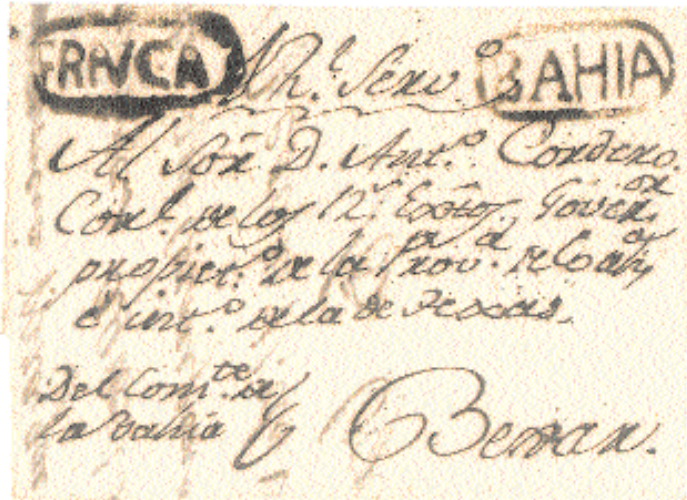 FRANCA Rl. Servo. BAHIA
Al Soñ. D. Anto. Cordero.
Corl. de los Rs. Extos. Goveror.
propieto. de la Prova. de Coaha.
é into. de la de Texas.
Del Comte. de
la Bahia
Bexar.